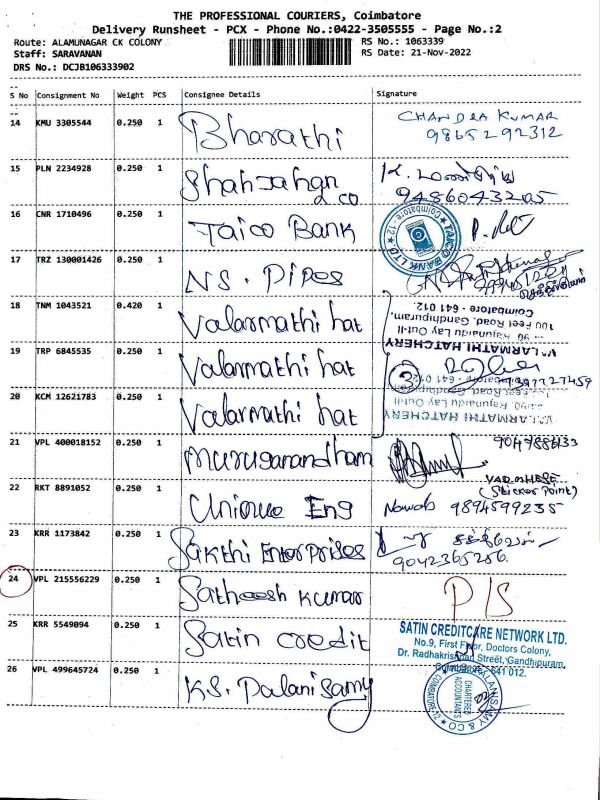 THE PROFESSIONAL COURIERS, Coimbatore
Delivery Runsheet - PCX - Phone No.:0422-3505555 - Page No.:2
Route: ALAMUNAGAR CK COLONY
RS No.: 1063339
Staff: SARAVANAN
RS Date: 21-Nov-2022
DRS No.: DCJB106333902
S No Consignment No Weight PCS Consignee Details Signature
14 KMU 3305544 0.250 1 Bharathi CHANDRA KUMAR
9865292312
15 PLN 2234928 0.250 1 Shahjahan & co
9486043205
16 CNR 1710496 0.250 1 Taico Bank
TAICO BANK LTD. Coimbatore - 12
17 TRZ 130001426 0.250 1 NS. Pipes
18 TNM 1043521 0.420 1 Valarmathi hat
Coimbatore - 641 012.
100 Feet Road, Gandhipuram,
90, Rajunaidu Lay Out-II
VALARMATHI HATCHERY
19 TRP 6845535 0.250 1 Valarmathi hat
20 KCM 12621783 0.250 1 Valarmathi hat
VALARMATHI HATCHERY
21 VPL 400018152 0.250 1 muruganandham
22 RKT 8891052 0.250 1 Unique Eng
(Sticker Point)
Nawab 9894599235
23 KRR 1173842 0.250 1 Sakthi Enterprises
சக்திவேல்
9042365256.
24 VPL 215556229 0.250 1 Satheesh Kumar P/S
25 KRR 5549094 0.250 1 Satin credit
SATIN CREDITCARE NETWORK LTD.
No.9, First Floor, Doctors Colony,
Dr. Radhakrishnan Street, Gandhipuram,
Coimbatore - 641 012.
26 VPL 499645724 0.250 1 K.S. Palanisamy
PALANISAMY & CO
CHARTERED ACCOUNTANTS
COIMBATORE-12